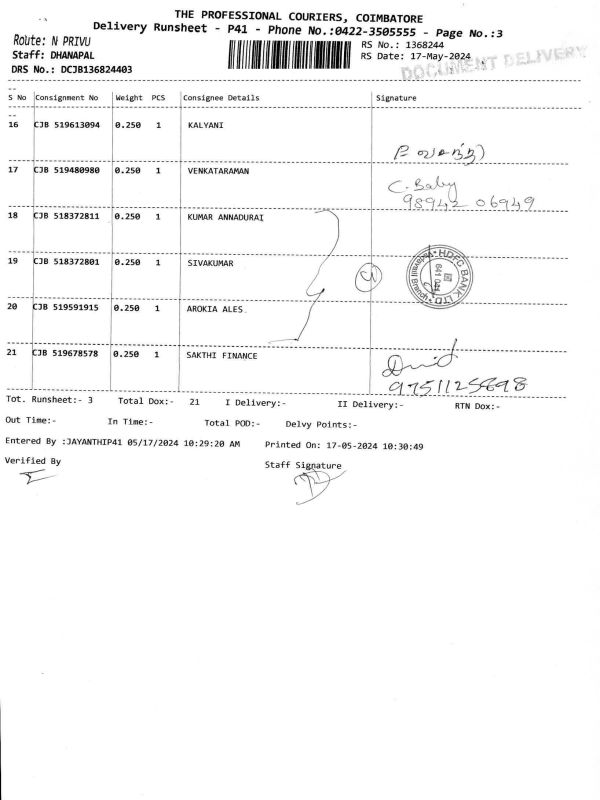 THE PROFESSIONAL COURIERS, COIMBATORE
Delivery Runsheet - P41 - Phone No.:0422-3505555 - Page No.:3
Route: N PRIVU
RS No.: 1368244
Staff: DHANAPAL
RS Date: 17-May-2024
DRS No.: DCJB136824403
DOCUMENT DELIVERY
S No Consignment No Weight PCS Consignee Details Signature
16 CJB 519613094 0.250 1 KALYANI
17 CJB 519480980 0.250 1 VENKATARAMAN
C. Baby
98942 06949
18 CJB 518372811 0.250 1 KUMAR ANNADURAI
19 CJB 518372801 0.250 1 SIVAKUMAR
HDFC BANK LTD
641 041
20 CJB 519591915 0.250 1 AROKIA ALES
21 CJB 519678578 0.250 1 SAKTHI FINANCE
9751125898
Tot. Runsheet:- 3 Total Dox:- 21 I Delivery:- II Delivery:- RTN Dox:-
Out Time:- In Time:- Total POD:- Delvy Points:-
Entered By :JAYANTHIP41 05/17/2024 10:29:20 AM Printed On: 17-05-2024 10:30:49
Verified By
Staff Signature